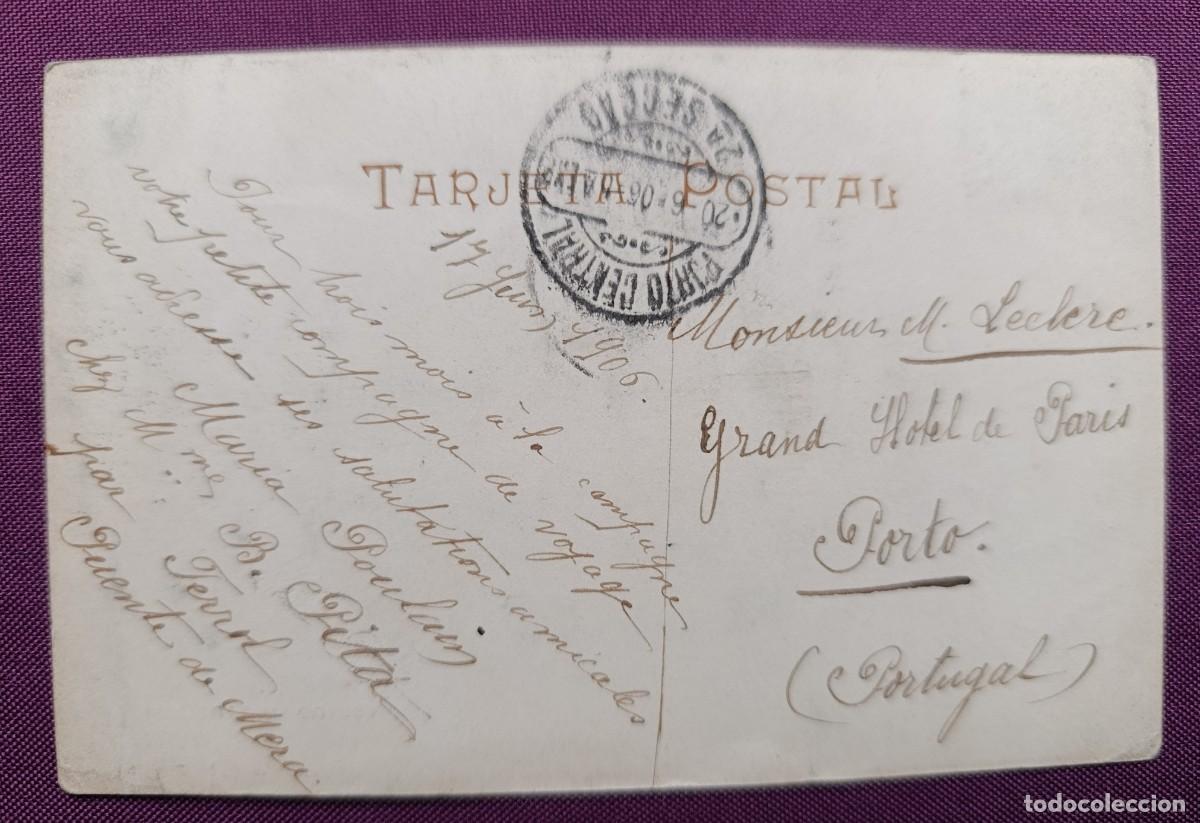 TARJETA POSTAL
PORTO CENTRAL
20 6 06
2A SECÇÃO
17 Juin 1906.
Pour trois mois à la campagne
votre petite compagne de voyage
vous adresse ses salutations amicales
Maria Poulain
chez Mme B. Pita
par Ferrol
Puente de Mera.
Monsieur M. Leclerc.
Grand Hotel de Paris
Porto.
(Portugal)
todocoleccion